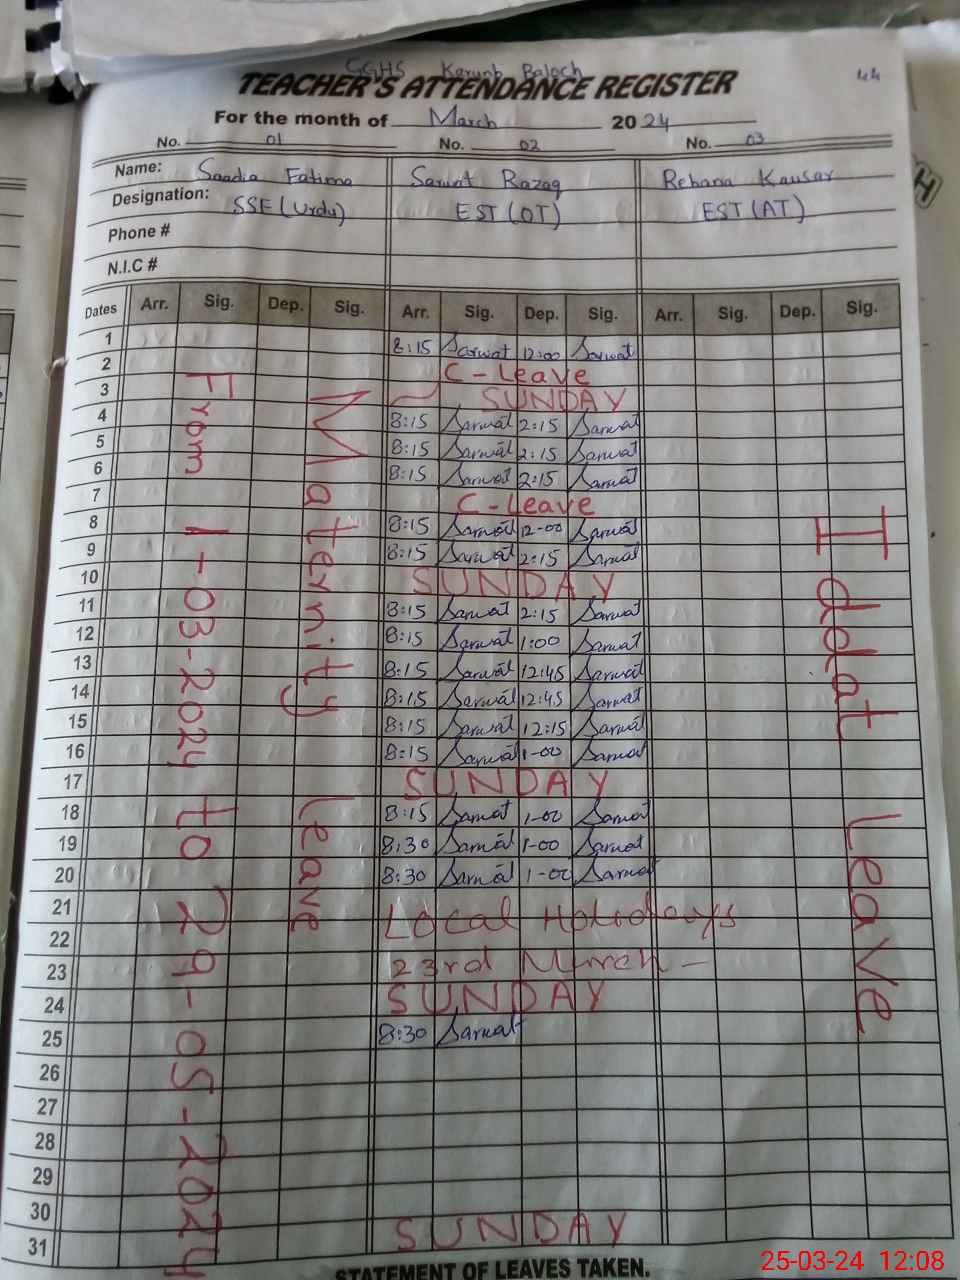 GGHS Karunb Baloch 44
TEACHER'S ATTENDANCE REGISTER
For the month of March 2024
No. 01 No. 02 No. 03
Name: Saadia Fatima Sarwat Razaq Rehana Kausar
Designation: SSE (Urdu) EST (OT) EST (AT)
Phone #
N.I.C #
Dates Arr. Sig. Dep. Sig. Arr. Sig. Dep. Sig. Arr. Sig. Dep. Sig.
From 1-03-2024 to 29-05-2024
Maternity Leave
1 8:15 Sarwat 12:00 Sarwat
2 C-Leave
3 SUNDAY
4 8:15 Sarwat 2:15 Sarwat
5 8:15 Sarwat 2:15 Sarwat
6 8:15 Sarwat 2:15 Sarwat
7 C-Leave
8 8:15 Sarwat 12-00 Sarwat
9 8:15 Sarwat 2:15 Sarwat
10 SUNDAY
11 8:15 Sarwat 2:15 Sarwat
12 8:15 Sarwat 1:00 Sarwat
13 8:15 Sarwat 12:45 Sarwat
14 8:15 Sarwat 12:45 Sarwat
15 8:15 Sarwat 12:15 Sarwat
16 8:15 Sarwat 1-00 Sarwat
17 SUNDAY
18 8:15 Sarwat 1-00 Sarwat
19 8:30 Sarwat 1-00 Sarwat
20 8:30 Sarwat 1-00 Sarwat
21 Local Holidays
22
23 23rd March -
24 SUNDAY
25 8:30 Sarwat
26
27
28
29
30
31 SUNDAY
Iddat Leave
STATEMENT OF LEAVES TAKEN.
H
25-03-24 12:08